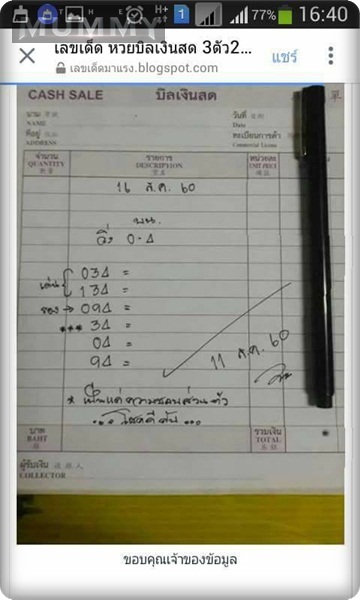 MUMMY
77% 16:40
เลขเด็ด หวยบิลเงินสด 3ตัว2...
แชร์
เลขเด็ดมาแรง.blogspot.com
CASH SALE บิลเงินสด
นาม
NAME
วันที่
Date
ที่อยู่
ADDRESS
ทะเบียนการค้า
Commercial Licens
จำนวน
QUANTITY
รายการ
DESCRIPTION
หน่วยละ
UNIT PRICE
16 ส.ค. 60
บน.
วิ่ง 0-4
เด่น
034 =
134 =
รอง → 094 =
*** 34 =
04 =
94 =
11 ส.ค. 60
* เป็นแค่ความชอบส่วนตัว
... โชคดีครับ ...
บาท
BAHT
รวมเงิน
TOTAL
ผู้รับเงิน
COLLECTOR
ขอบคุณเจ้าของข้อมูล